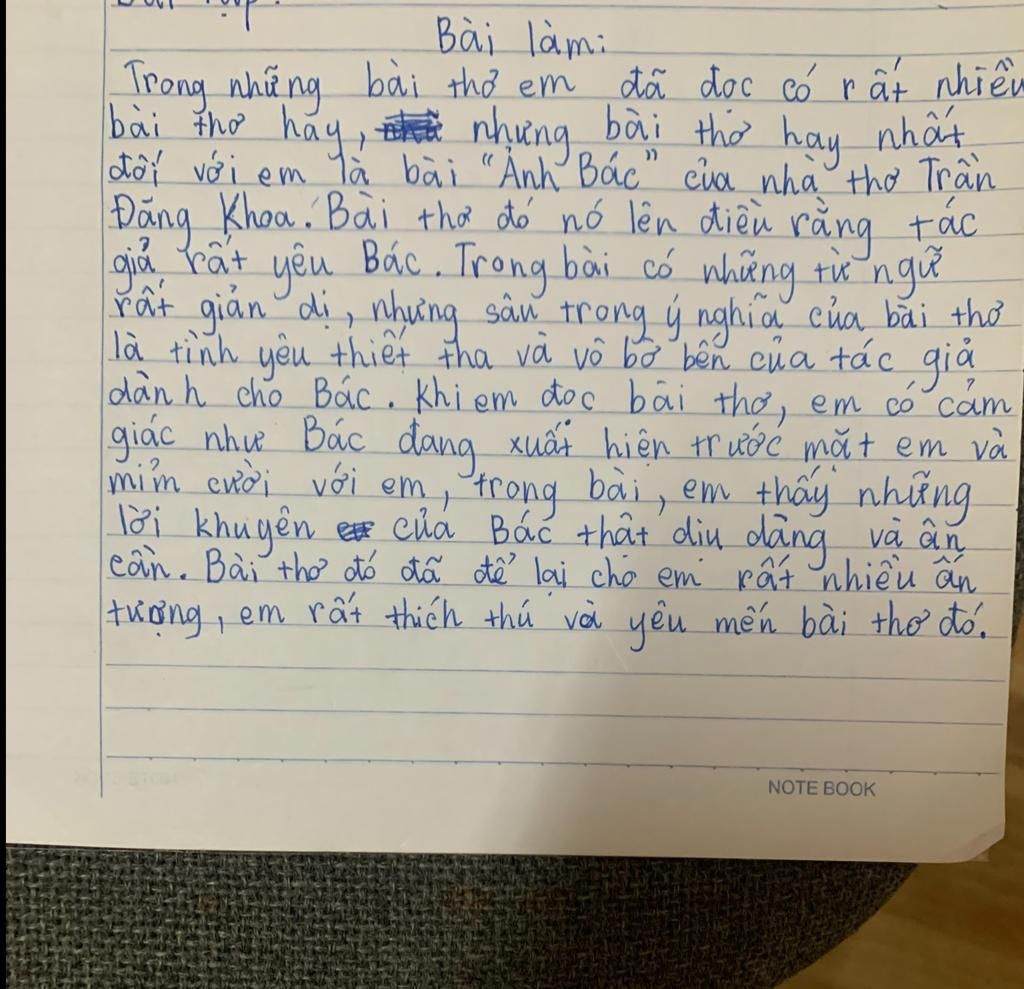 Bài làm:
Trong những bài thơ em đã đọc có rất nhiều
bài thơ hay, nhưng bài thơ hay nhất
đối với em là bài "Ảnh Bác" của nhà thơ Trần
Đăng Khoa. Bài thơ đó nó lên điều rằng tác
giả rất yêu Bác. Trong bài có những từ ngữ
rất giản dị, nhưng sâu trong ý nghĩa của bài thơ
là tình yêu thiết tha và vô bờ bến của tác giả
dành cho Bác. Khi em đọc bài thơ, em có cảm
giác như Bác đang xuất hiện trước mặt em và
mỉm cười với em, trong bài, em thấy những
lời khuyên của Bác thật dịu dàng và ân
cần. Bài thơ đó đã để lại cho em rất nhiều ấn
tượng, em rất thích thú và yêu mến bài thơ đó.
NOTE BOOK